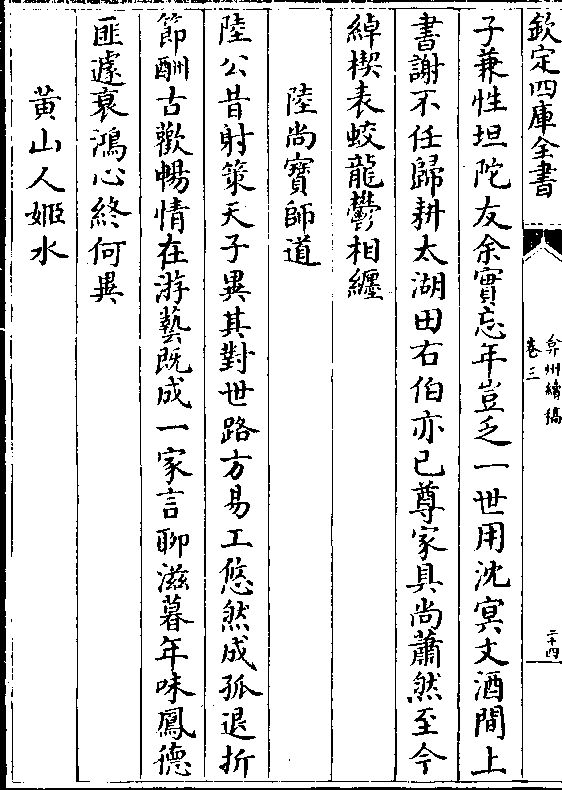 欽定四庫全書
弇州續稿
卷三
二十四
子兼性坦陀友余實忘年豈乏一世用沈冥文酒間上
書謝不任歸耕太湖田右伯亦已尊家具尚蕭然至今
綽楔表蛟龍鬱相纏
陸尚寶師道
陸公昔射策天子異其對世路方易工悠然成孤退折
節酬古歡暢情在游藝既成一家言聊滋暮年味鳳德
匪遽衰鴻心終何異
黃山人姬水